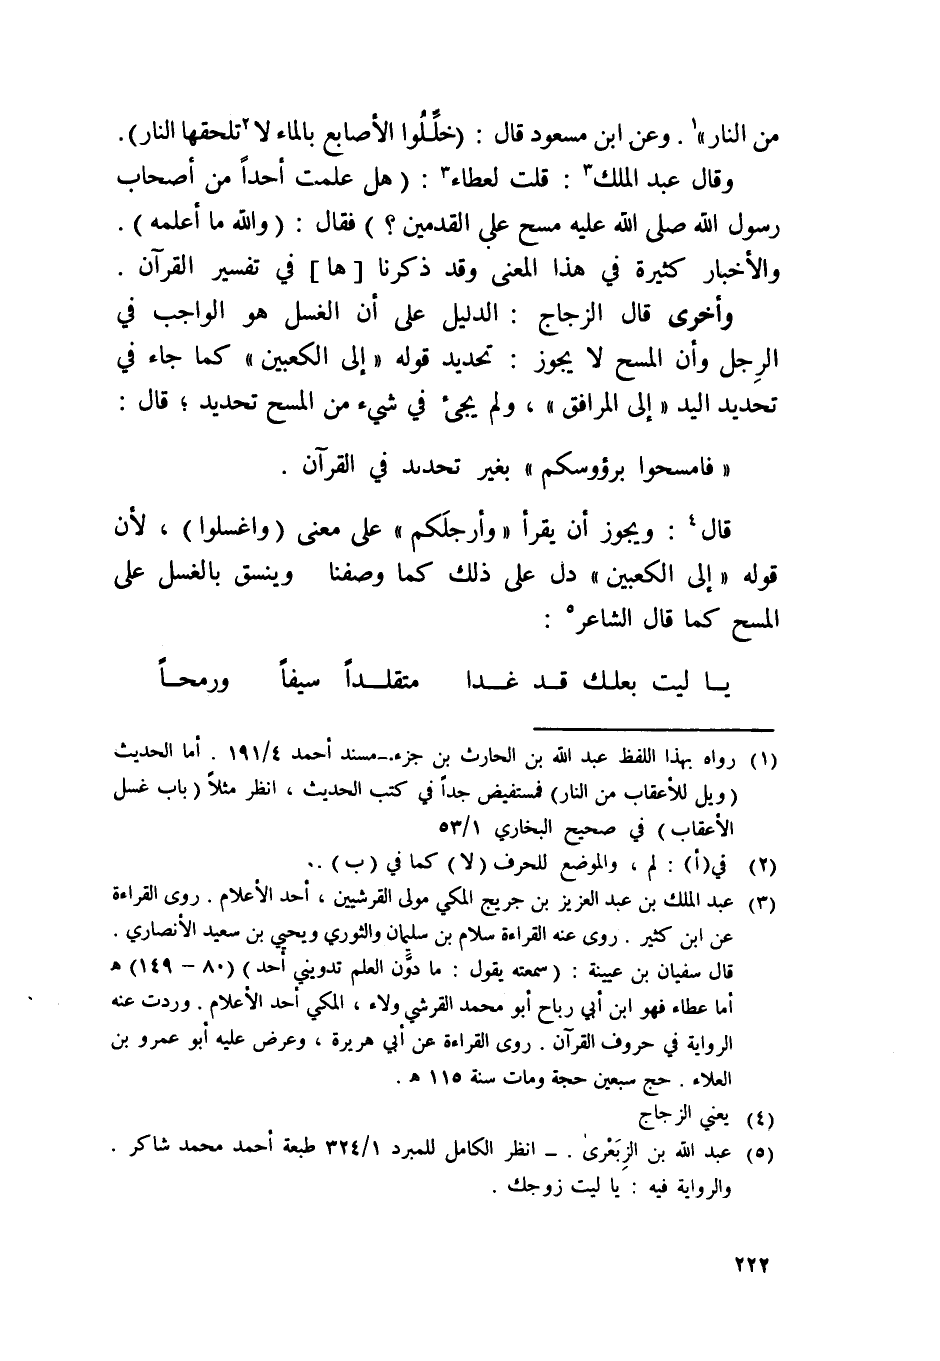 من النار»١ . وعن ابن مسعود قال : (خلِّلُوا الأصابع بالماء لا٢ تلحقها النار).
وقال عبد الملك٣ : قلت لعطاء٣ : ( هل علمت أحداً من أصحاب
رسول الله صلى الله عليه مسح على القدمين ؟ ) فقال : ( والله ما أعلمه ) .
والأخبار كثيرة في هذا المعنى وقد ذكرنا [ ها ] في تفسير القرآن .
وأخرى قال الزجاج : الدليل على أن الغسل هو الواجب في
الرِجل وأن المسح لا يجوز : تحديد قوله « إلى الكعبين » كما جاء في
تحديد اليد « إلى المرافق » ، ولم يجئ في شيء من المسح تحديد ؛ قال :
« فامسحوا برؤوسكم » بغير تحديد في القرآن .
قال٤ : ويجوز أن يقرأ « وأرجلَكم » على معنى ( واغسلوا ) ، لأن
قوله « إلى الكعبين » دل على ذلك كما وصفنا وينسق بالغسل على
المسح كما قال الشاعر٥ :
يـا ليت بعلـك قـد غـدا متقلـداً سيفاً ورمحـاً
(١) رواه بهذا اللفظ عبد الله بن الحارث بن جزء.ـ مسند أحمد ١٩١/٤ . أما الحديث
(ويل للأعقاب من النار) فمستفيض جداً في كتب الحديث ، انظر مثلاً ( باب غسل
الأعقاب ) في صحيح البخاري ٥٣/١
(٢) في(أ) : لم ، والموضع للحرف ( لا ) كما في ( ب ) ..
(٣) عبد الملك بن عبد العزيز بن جريج المكي مولى القرشيين ، أحد الأعلام . روى القراءة
عن ابن كثير . روى عنه القراءة سلام بن سليمان والثوري ويحيى بن سعيد الأنصاري .
قال سفيان بن عيينة : ( سمعته يقول : ما دوَّن العلم تدويني أحد ) (٨٠ – ١٤٩) هـ
أما عطاء فهو ابن أبي رباح أبو محمد القرشي ولاء ، المكي أحد الأعلام . وردت عنه
الرواية في حروف القرآن . روى القراءة عن أبي هريرة ، وعرض عليه أبو عمرو بن
العلاء . حج سبعين حجة ومات سنة ١١٥ هـ .
(٤) يعني الزجاج
(٥) عبد الله بن الزِبَعْرىٰ . ـ انظر الكامل للمبرد ٣٢٤/١ طبعة أحمد محمد شاكر .
والرواية فيه : يا ليت زوجك .
٢٢٢